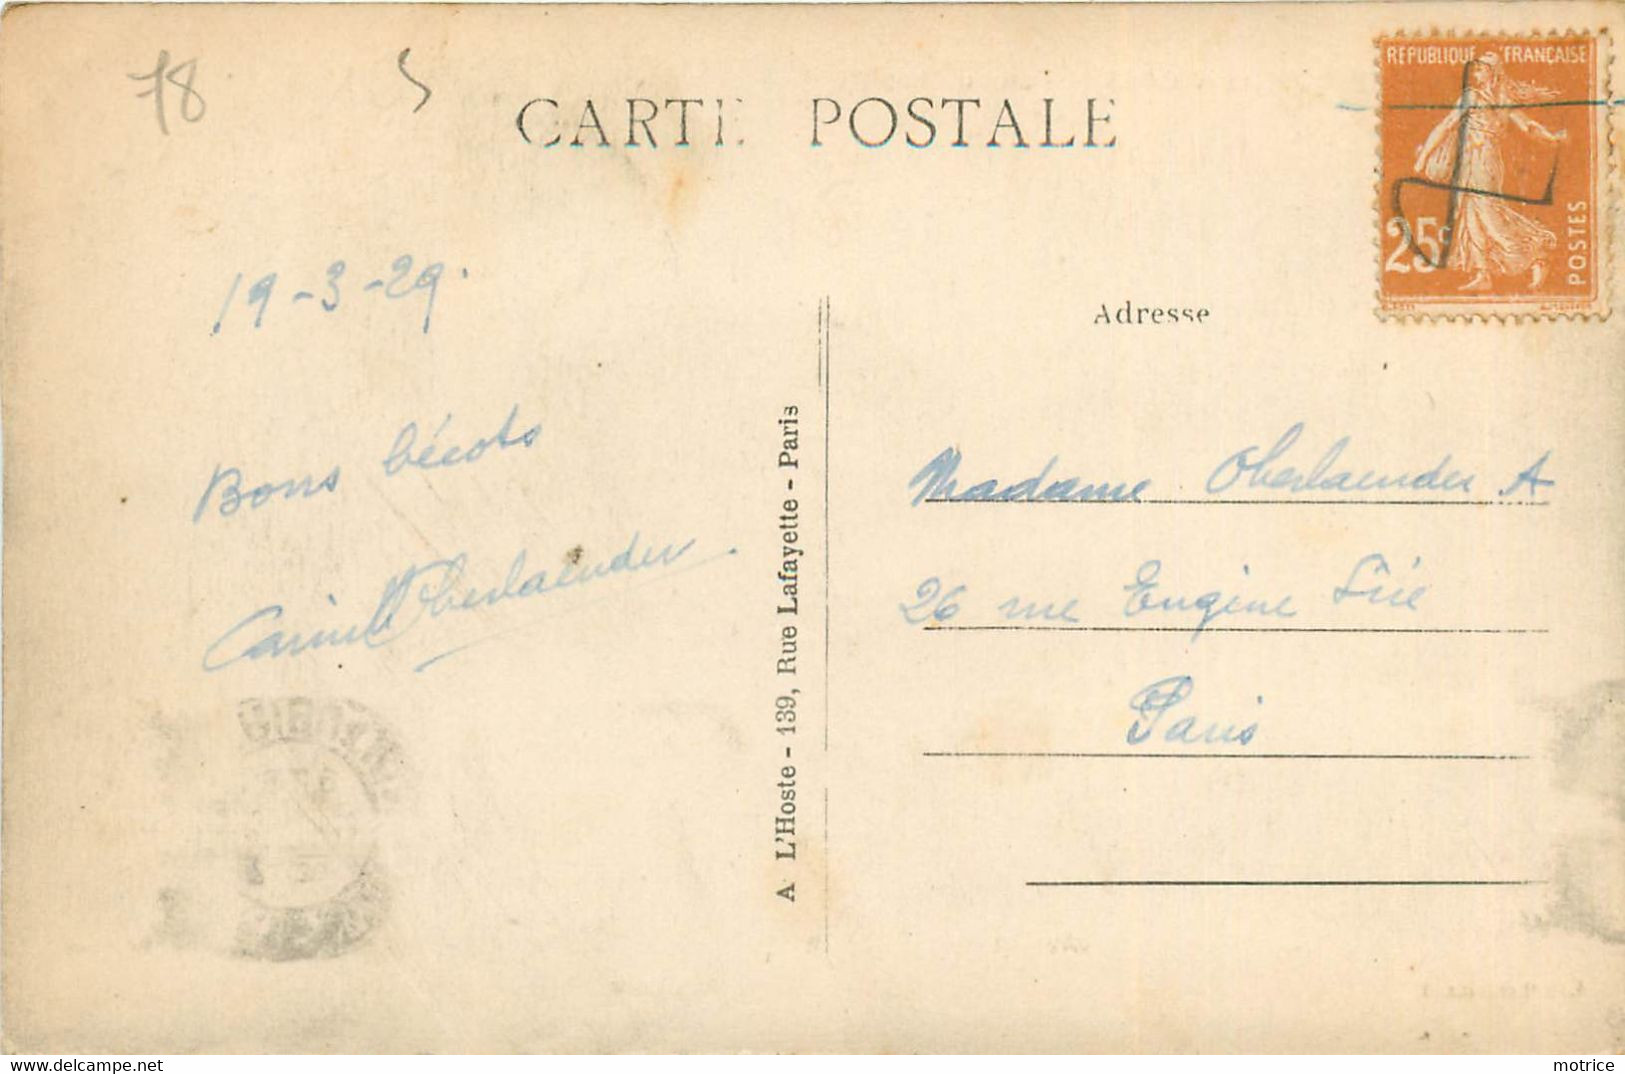 78
CARTE POSTALE
REPUBLIQUE FRANÇAISE
25c
POSTES
19-3-29.
Adresse
Bons bécots
Camille Oberlaender.
A. L'Hoste - 139, Rue Lafayette - Paris
Madame Oberlaender A
26 rue Eugène Süe
Paris
www.delcampe.net
motrice